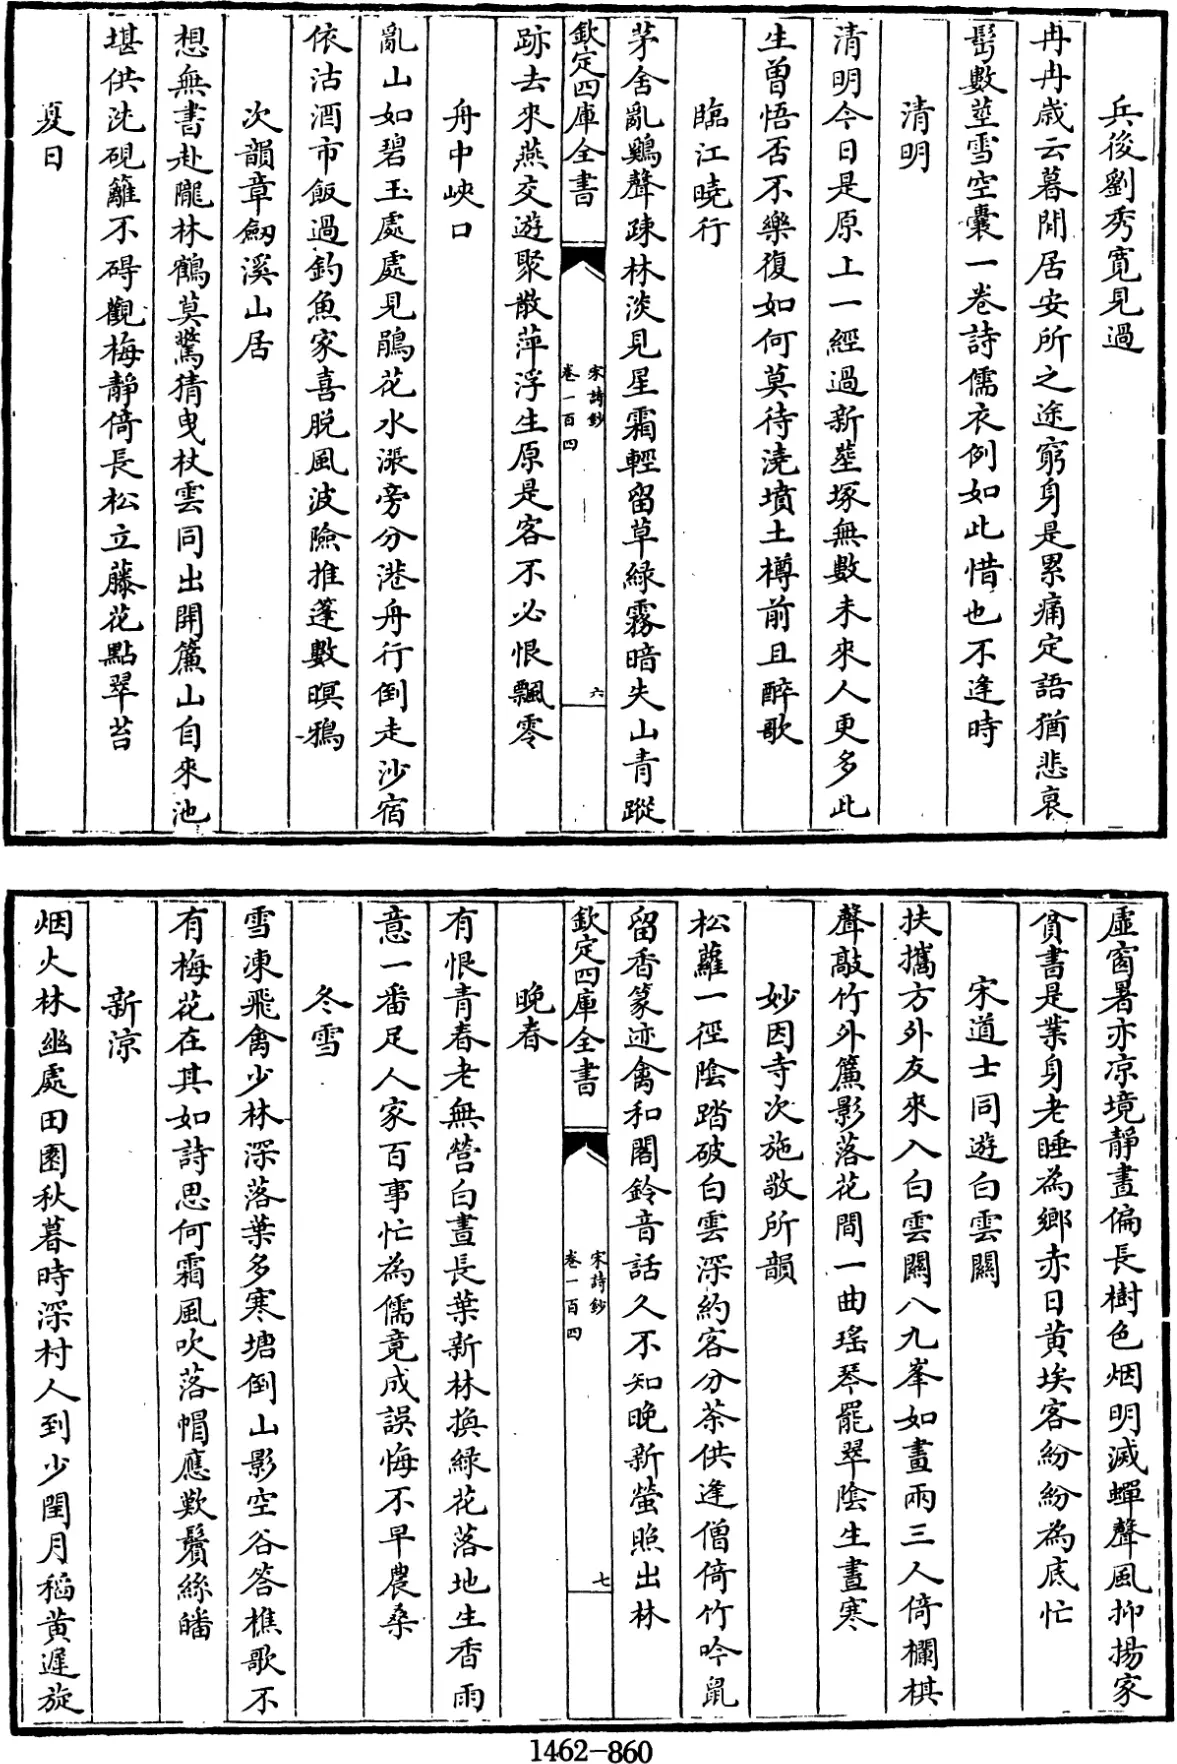 兵後劉秀寛見過
冉冉歳云暮閒居安所之途窮身是累痛定語猶悲哀
髩數莖雪空囊一巻詩儒衣例如此惜也不逢時
清明
清明今日是原上一經過新壟塚無數未來人更多此
生曽悟否不樂復如何莫待澆墳土樽前且醉歌
臨江曉行
茅舍亂鷄聲疎林淡見星霜輕留草緑霧暗失山青蹤
欽定四庫全書
宋詩鈔
卷一百四
六
跡去來燕交遊聚散萍浮生原是客不必恨飄零
舟中峽口
亂山如碧玉處處見鵑花水漲旁分港舟行倒走沙宿
依沽酒市飯過釣魚家喜脱風波險推蓬數暝鴉
次韻章劒溪山居
想無書赴隴林鶴莫驚猜曵杖雲同出開簾山自來池
堪供洗硯籬不碍觀梅靜倚長松立藤花點翠苔
夏日
虚窗暑亦凉境靜晝偏長樹色烟明滅蟬聲風抑揚家
貧書是業身老睡為鄉赤日黄埃客紛紛為底忙
宋道士同遊白雲關
扶攜方外友來入白雲關八九峯如畫兩三人倚欄棋
聲敲竹外簾影落花間一曲瑤琴罷翠陰生晝寒
妙因寺次施敬所韻
松蘿一徑陰踏破白雲深約客分茶供逢僧倚竹吟鼠
留香篆迹禽和閣鈴音話久不知晚新螢照出林
欽定四庫全書
宋詩鈔
卷一百四
七
晚春
有恨青春老無營白晝長葉新林換緑花落地生香雨
意一番足人家百事忙為儒竟成誤悔不早農桑
冬雪
雪凍飛禽少林深落葉多寒塘倒山影空谷答樵歌不
有梅花在其如詩思何霜風吹落帽應歎鬢絲皤
新涼
烟火林幽處田園秋暮時深村人到少閏月稻黄遲旋
1462-860